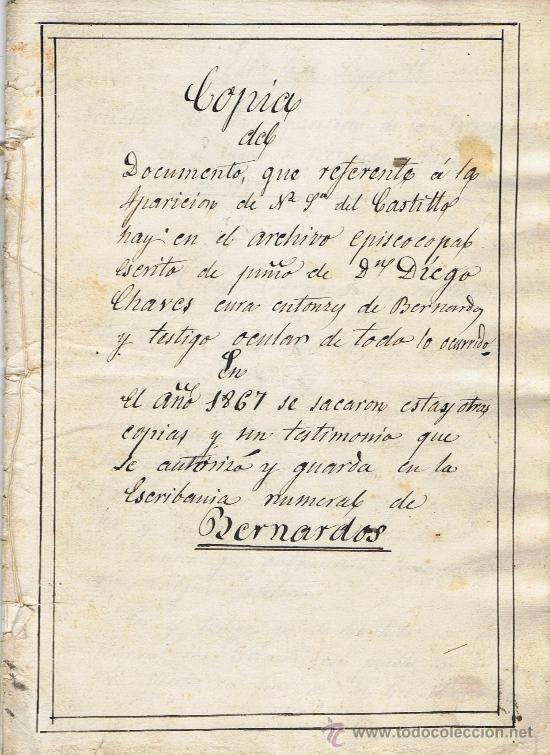 Copia
del
Documento, que referente á la
Aparicion de Nª Sª del Castillo
hay en el archivo Episcocopal
escrito de puño de Dn Diego
Chaves cura entonzes de Bernardos
y testigo ocular de todo lo ocurrido.
En
el año 1867 se sacaron estas y otras
copias y un testimonio que
se autorizó y guarda en la
Escribania numeral de
Bernardos
todocoleccion
www.todocoleccion.net